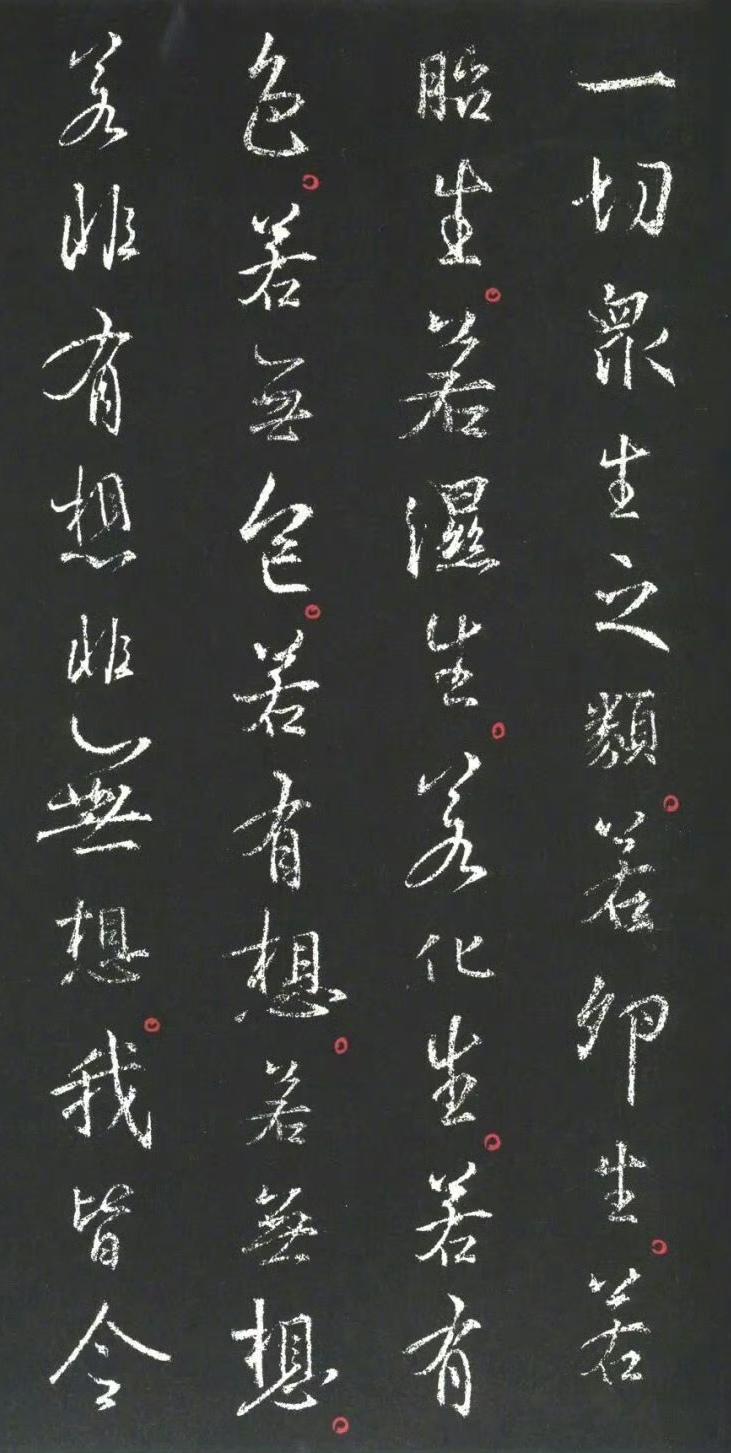 一切衆生之類。若卵生。若
胎生。若濕生。若化生。若有
色。若無色。若有想。若無想。
若非有想非無想。我皆令